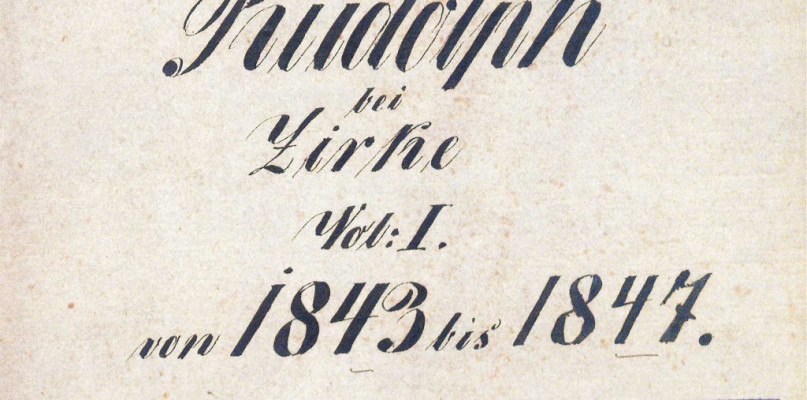 Rudolph
bei
Zirke
Vol: I.
von 1843 bis 1847.